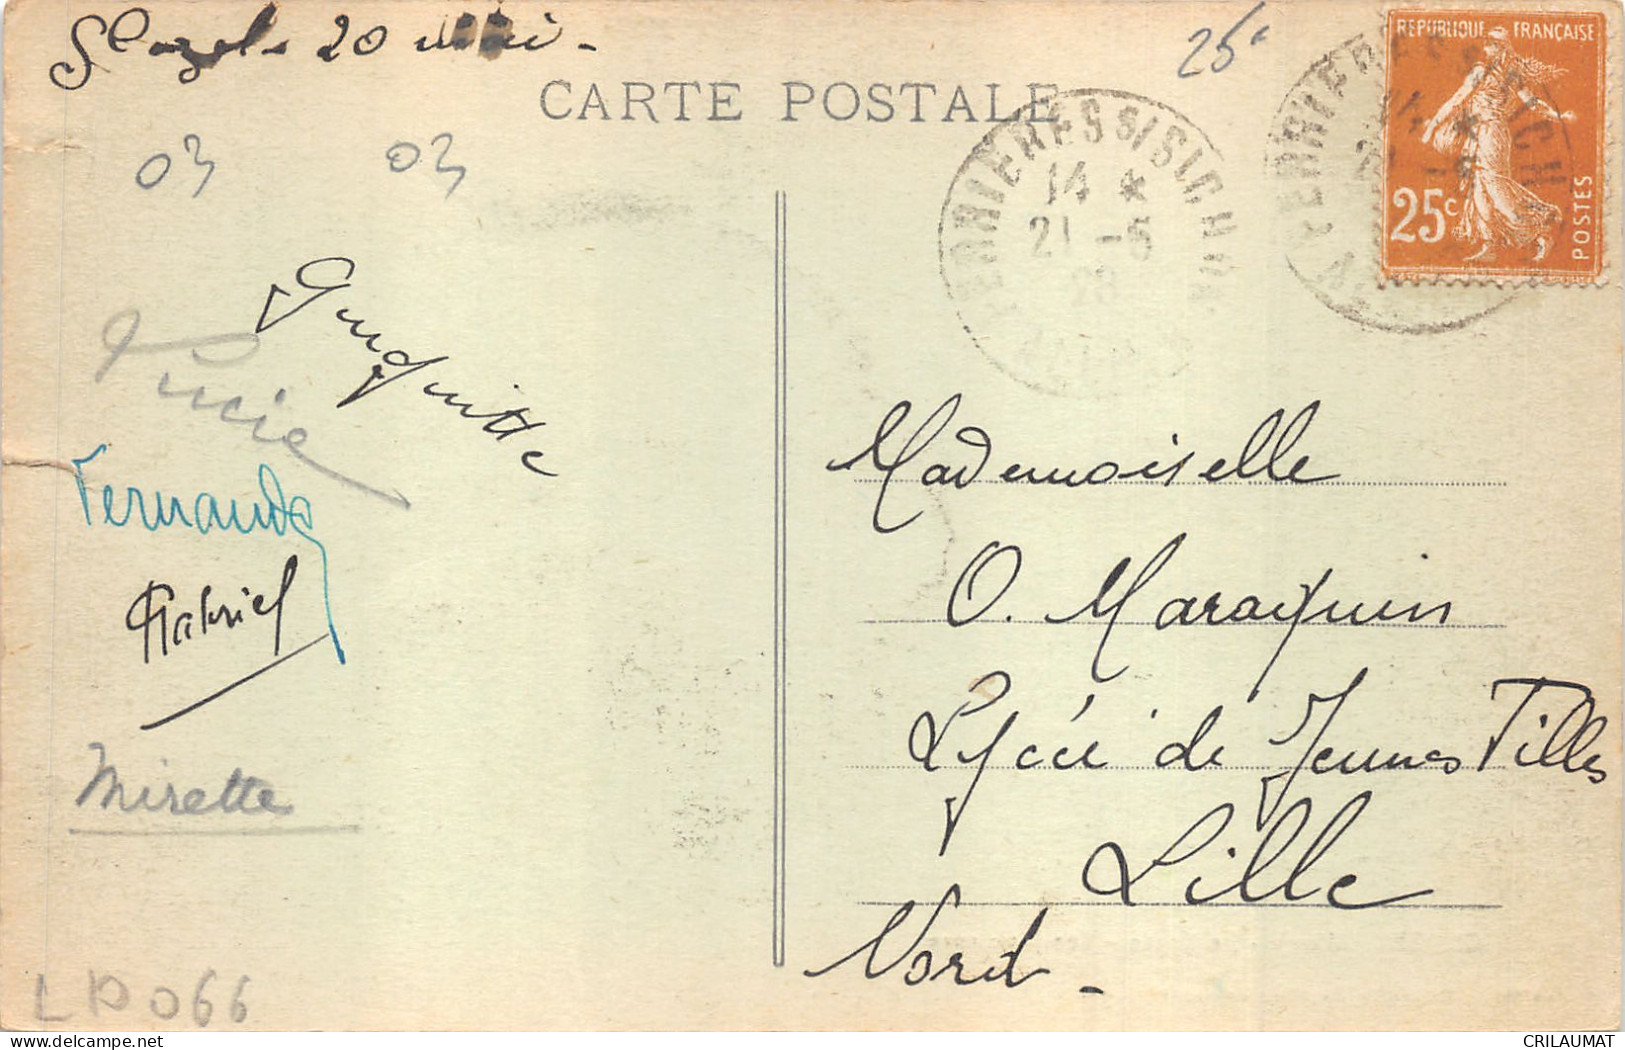 20 mai -
25c
CARTE POSTALE
REPUBLIQUE FRANÇAISE
25c
POSTES
FERRIERES S/SICHON
14 *
21 -5
28
03
03
Lucie
Fernande
Gabriel
Mirette
Mademoiselle
O. Maraquin
Lycée de Jeunes Filles
Lille
Nord -
LD 066
CRILAUMAT